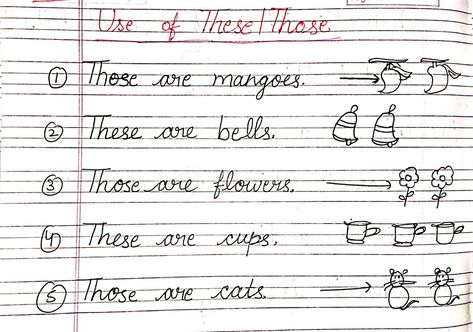 Use of These/Those
① Those are mangoes.
② These are bells.
③ Those are flowers.
④ These are cups.
⑤ Those are cats.